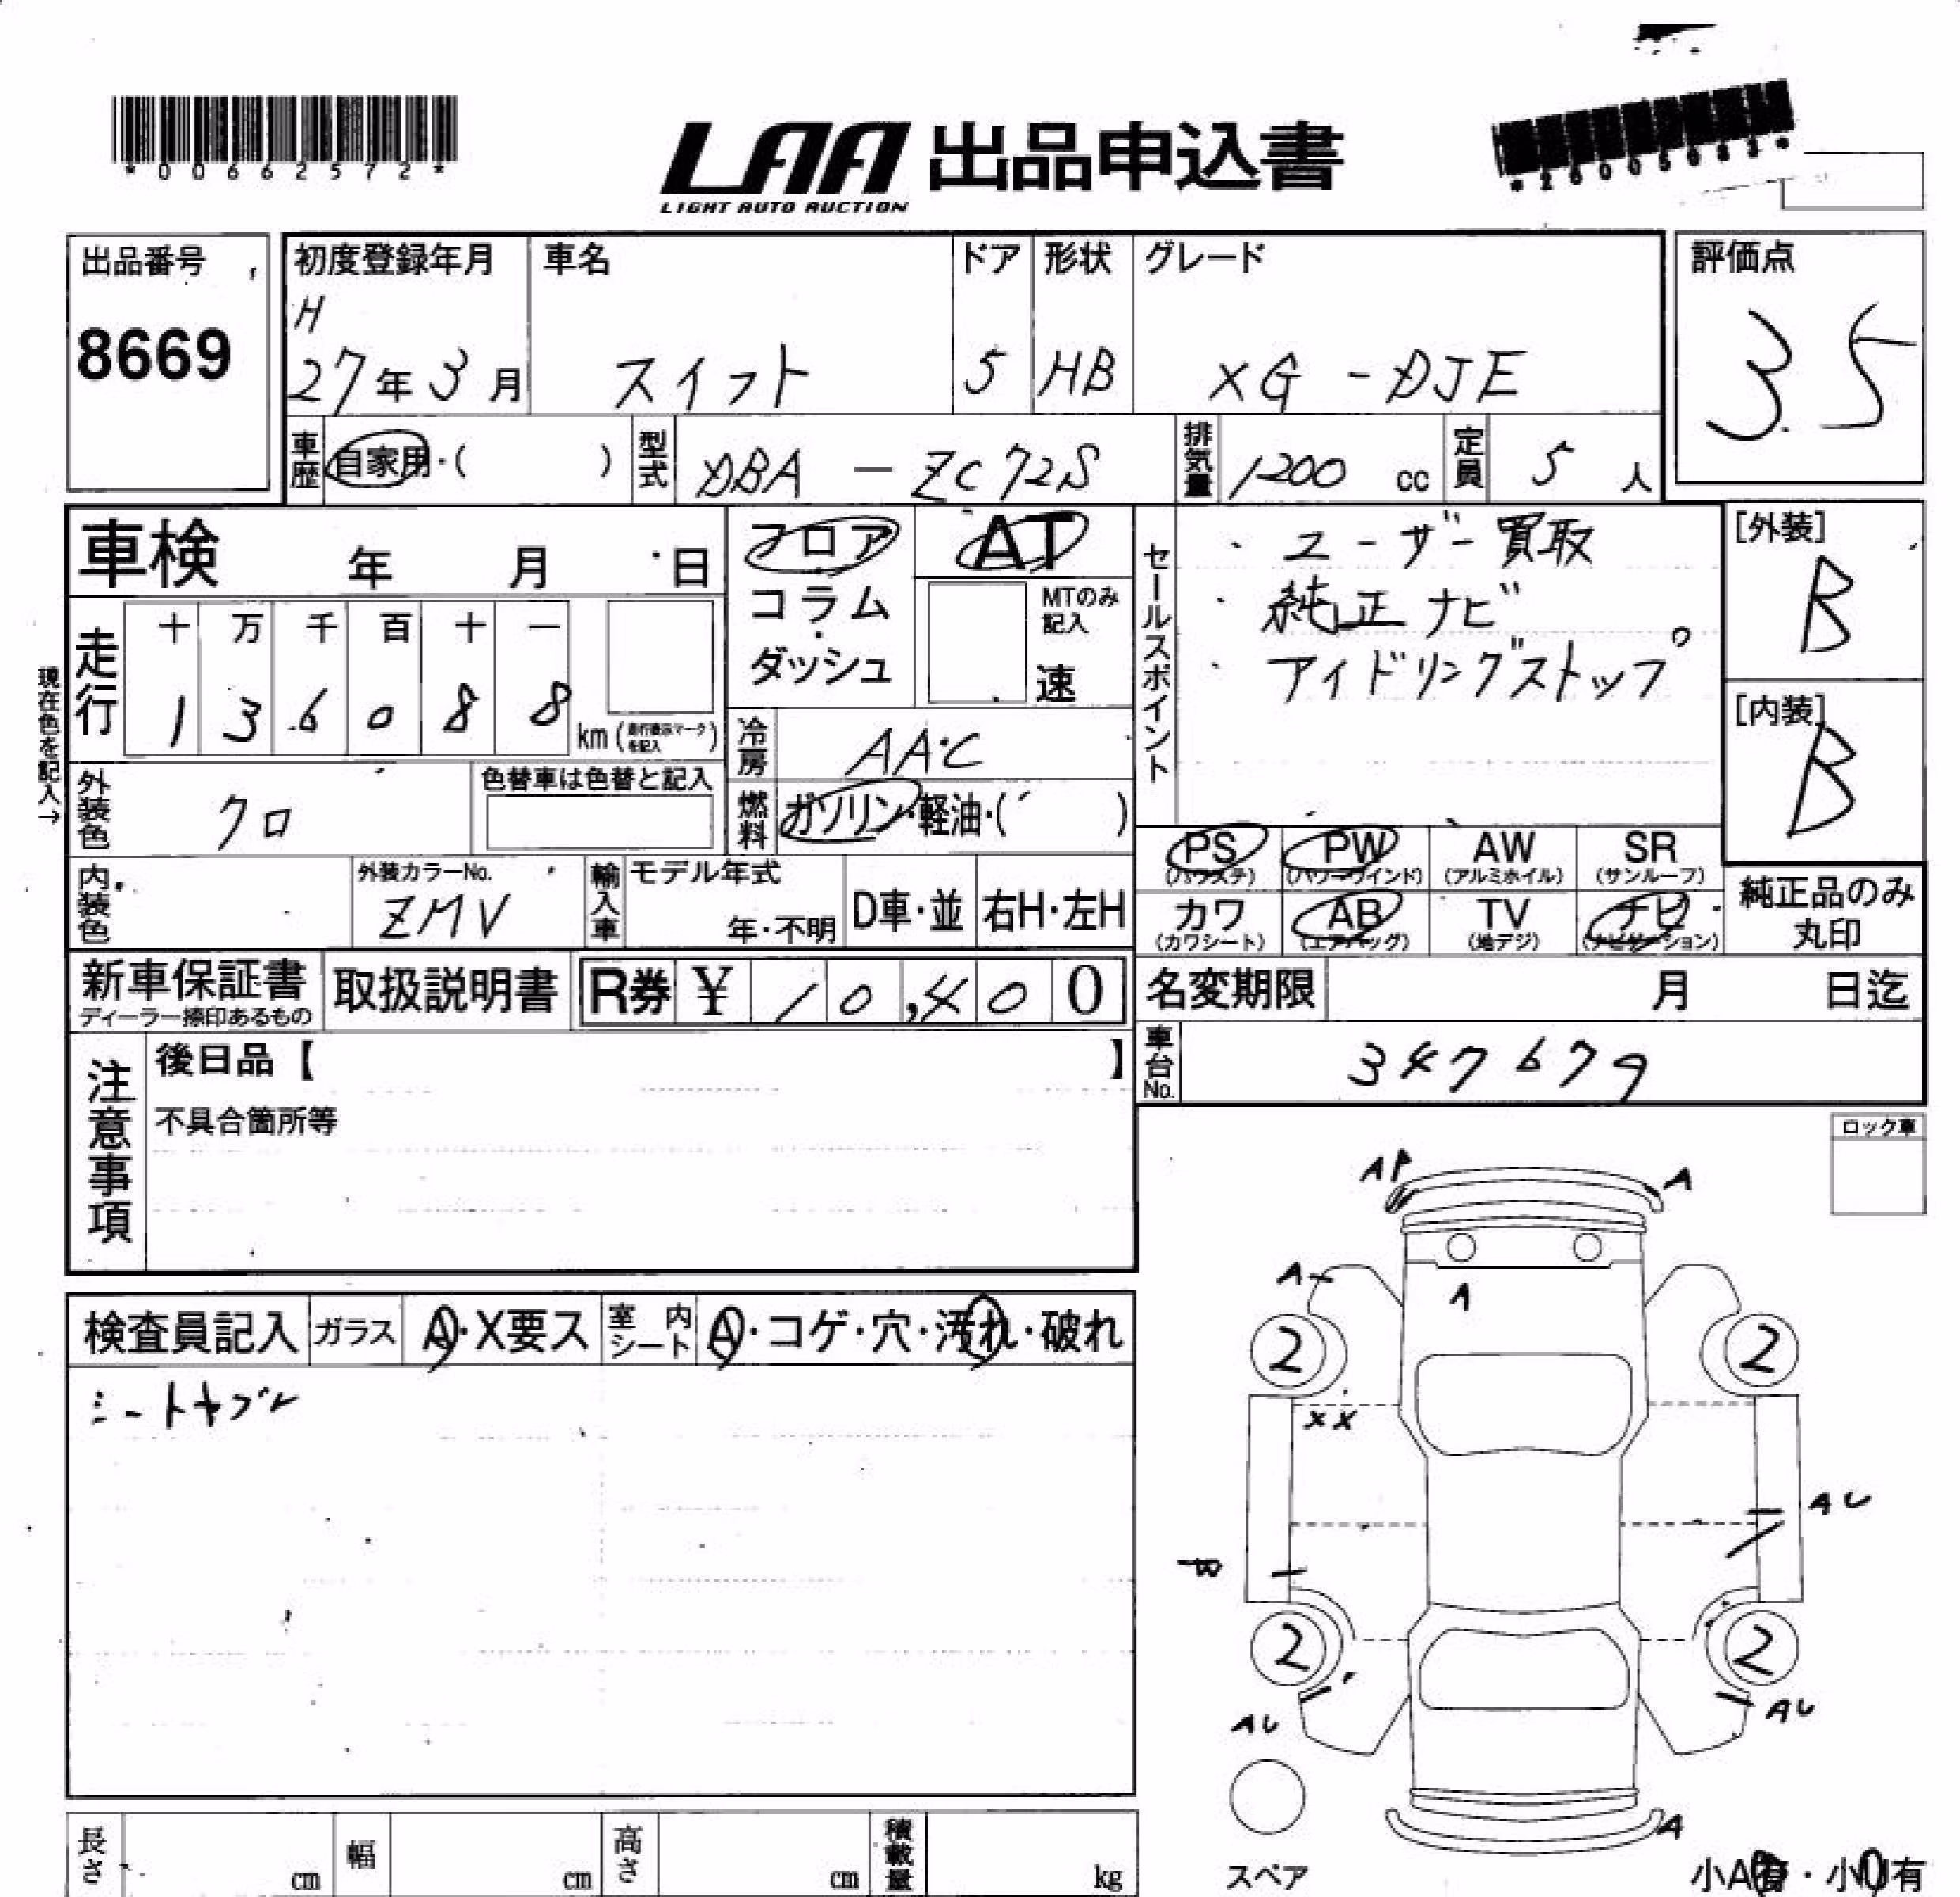 *00662572*
LAA 出品申込書
LIGHT AUTO AUCTION
出品番号
8669
初度登録年月
H
27年3月
車名
スイフト
ドア
5
形状
HB
グレード
XG-DJE
評価点
3.5
車歴
自家用・( )
型式
DBA-ZC72S
排気量
1200 cc
定員
5人
車検 年 月 日
フロア
コラム
・
ダッシュ
AT
MTのみ
記入
速
セールスポイント
・ユーザー買取
・純正ナビ
・アイドリングストップ
[外装]
B
[内装]
B
現在色を記入→
走行
十 万 千 百 十 一
1 3 6 0 8 8
km (走行表示マークを記入)
冷房
AAC
外装色
クロ
色替車は色替と記入
燃料
ガソリン・軽油・( )
PS
(パワステ)
PW
(パワーウインド)
AW
(アルミホイル)
SR
(サンルーフ)
カワ
(カワシート)
AB
(エアバッグ)
TV
(地デジ)
ナビ
(ナビゲーション)
純正品のみ
丸印
内装色
外装カラーNo.
ZMV
輸入車
モデル年式
年・不明
D車・並
右H・左H
新車保証書
ディーラー捺印あるもの
取扱説明書
R券 ¥ 10,400
名変期限 月 日迄
車台No.
347679
注意事項
後日品【 】
不具合箇所等
ロック車
AP
A
A
A
2
2
XX
AU
B
2
2
AU
AU
A
検査員記入
ガラス
A・X要ス
室内シート
A・コゲ・穴・汚れ・破れ
シートヤブレ
長さ cm
幅 cm
高さ cm
積載量 kg
スペア
小A有・小U有